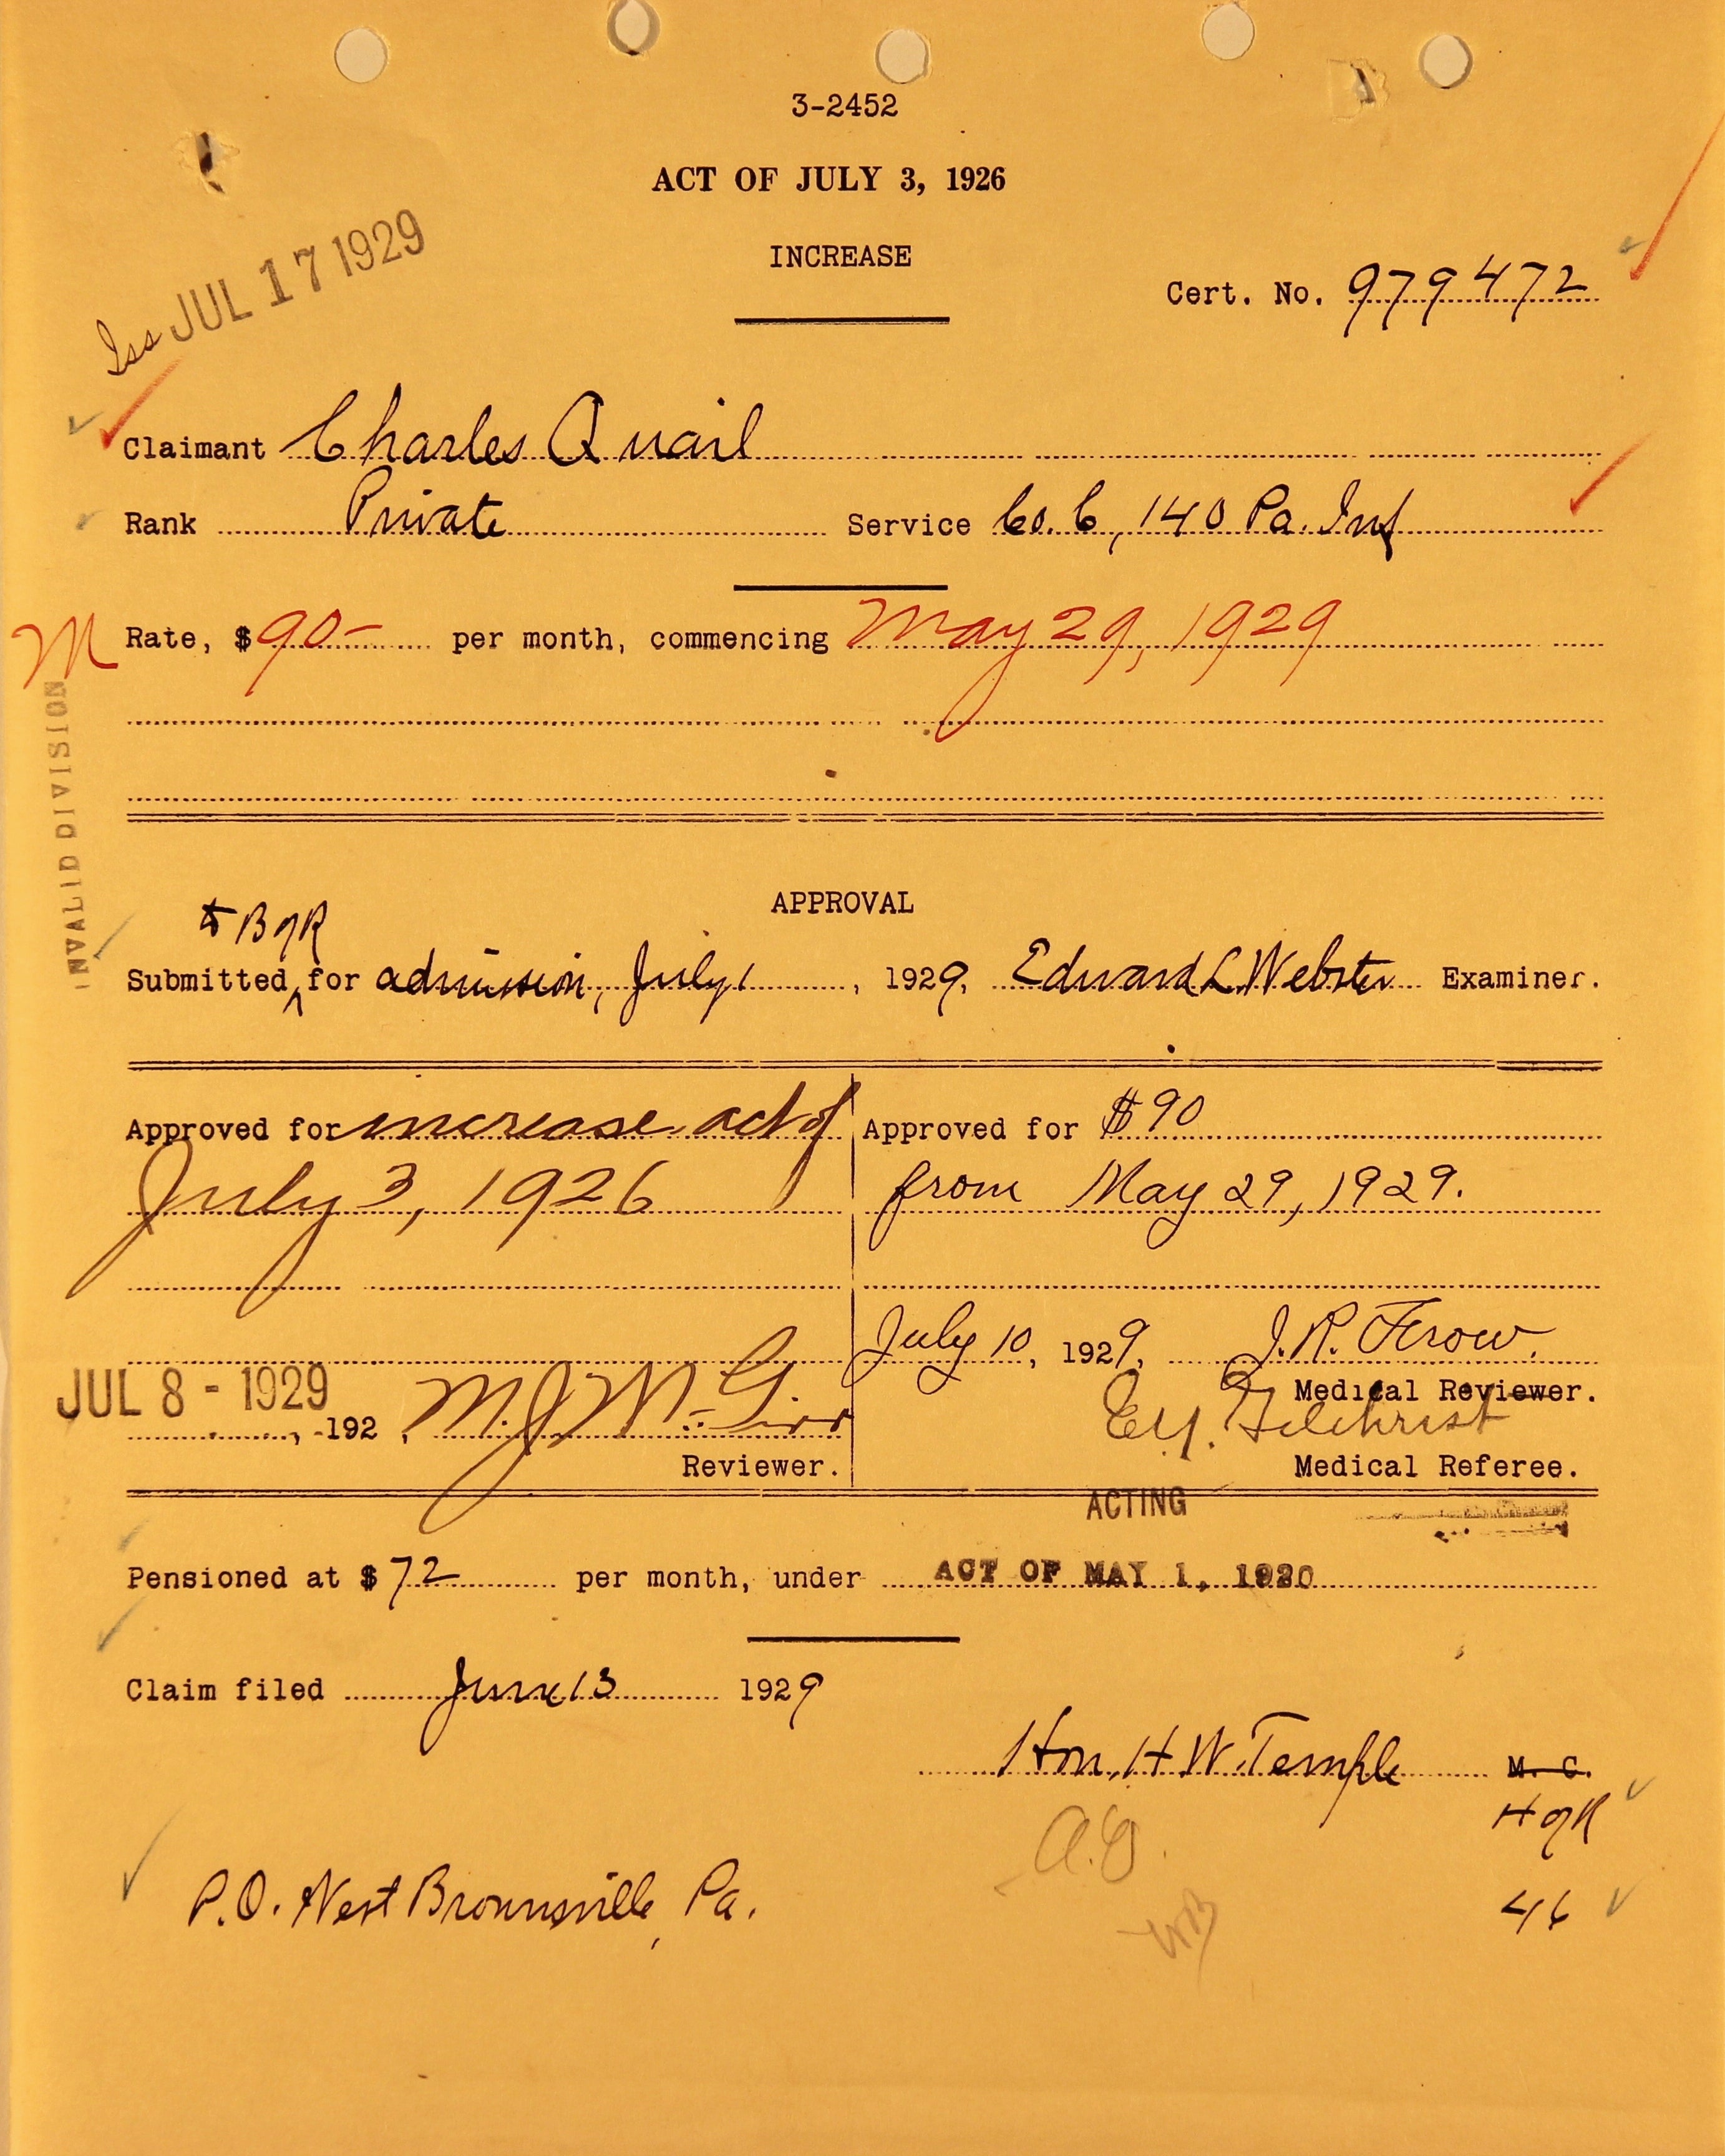 3-2452
ACT OF JULY 3, 1926
INCREASE
Iss JUL 17 1929
Cert. No. 979472
Claimant Charles Quail
Rank Private Service Co. C, 140 Pa. Inf
M Rate, $90- per month, commencing May 29, 1929
INVALID DIVISION
APPROVAL
& B of R
Submitted, for admission, July 1, 1929, Edward L. Webster Examiner.
Approved for increase act of
July 3, 1926
Approved for $90
from May 29, 1929.
JUL 8 - 1929
, 192 ,
Reviewer.
July 10, 1929,
Medical Reviewer.
Gilchrist
Medical Referee.
ACTING
Pensioned at $72 per month, under ACT OF MAY 1, 1920
Claim filed June 13 1929
Hon. H W. Temple M. C.
H of R
46
P.O. West Brownsville, Pa.